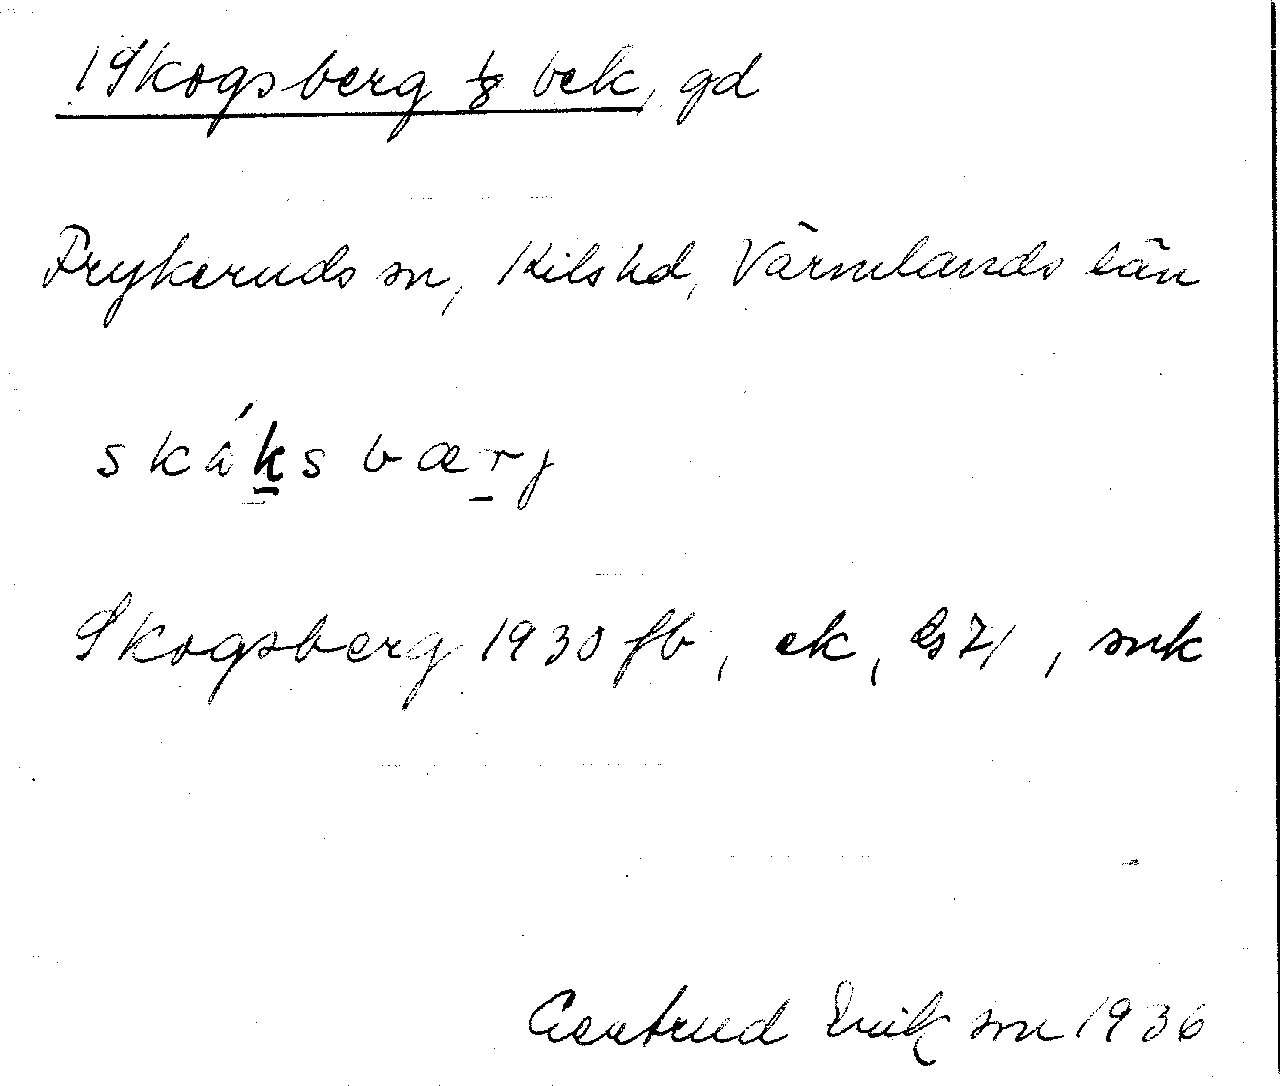 1 Skogsberg 1/8 bek, gd
Frykeruds sn, Kils hd, Värmlands län
skáksbærj
Skogsberg 1930 fb, ek, , snk
Gertrud Erikson 1936